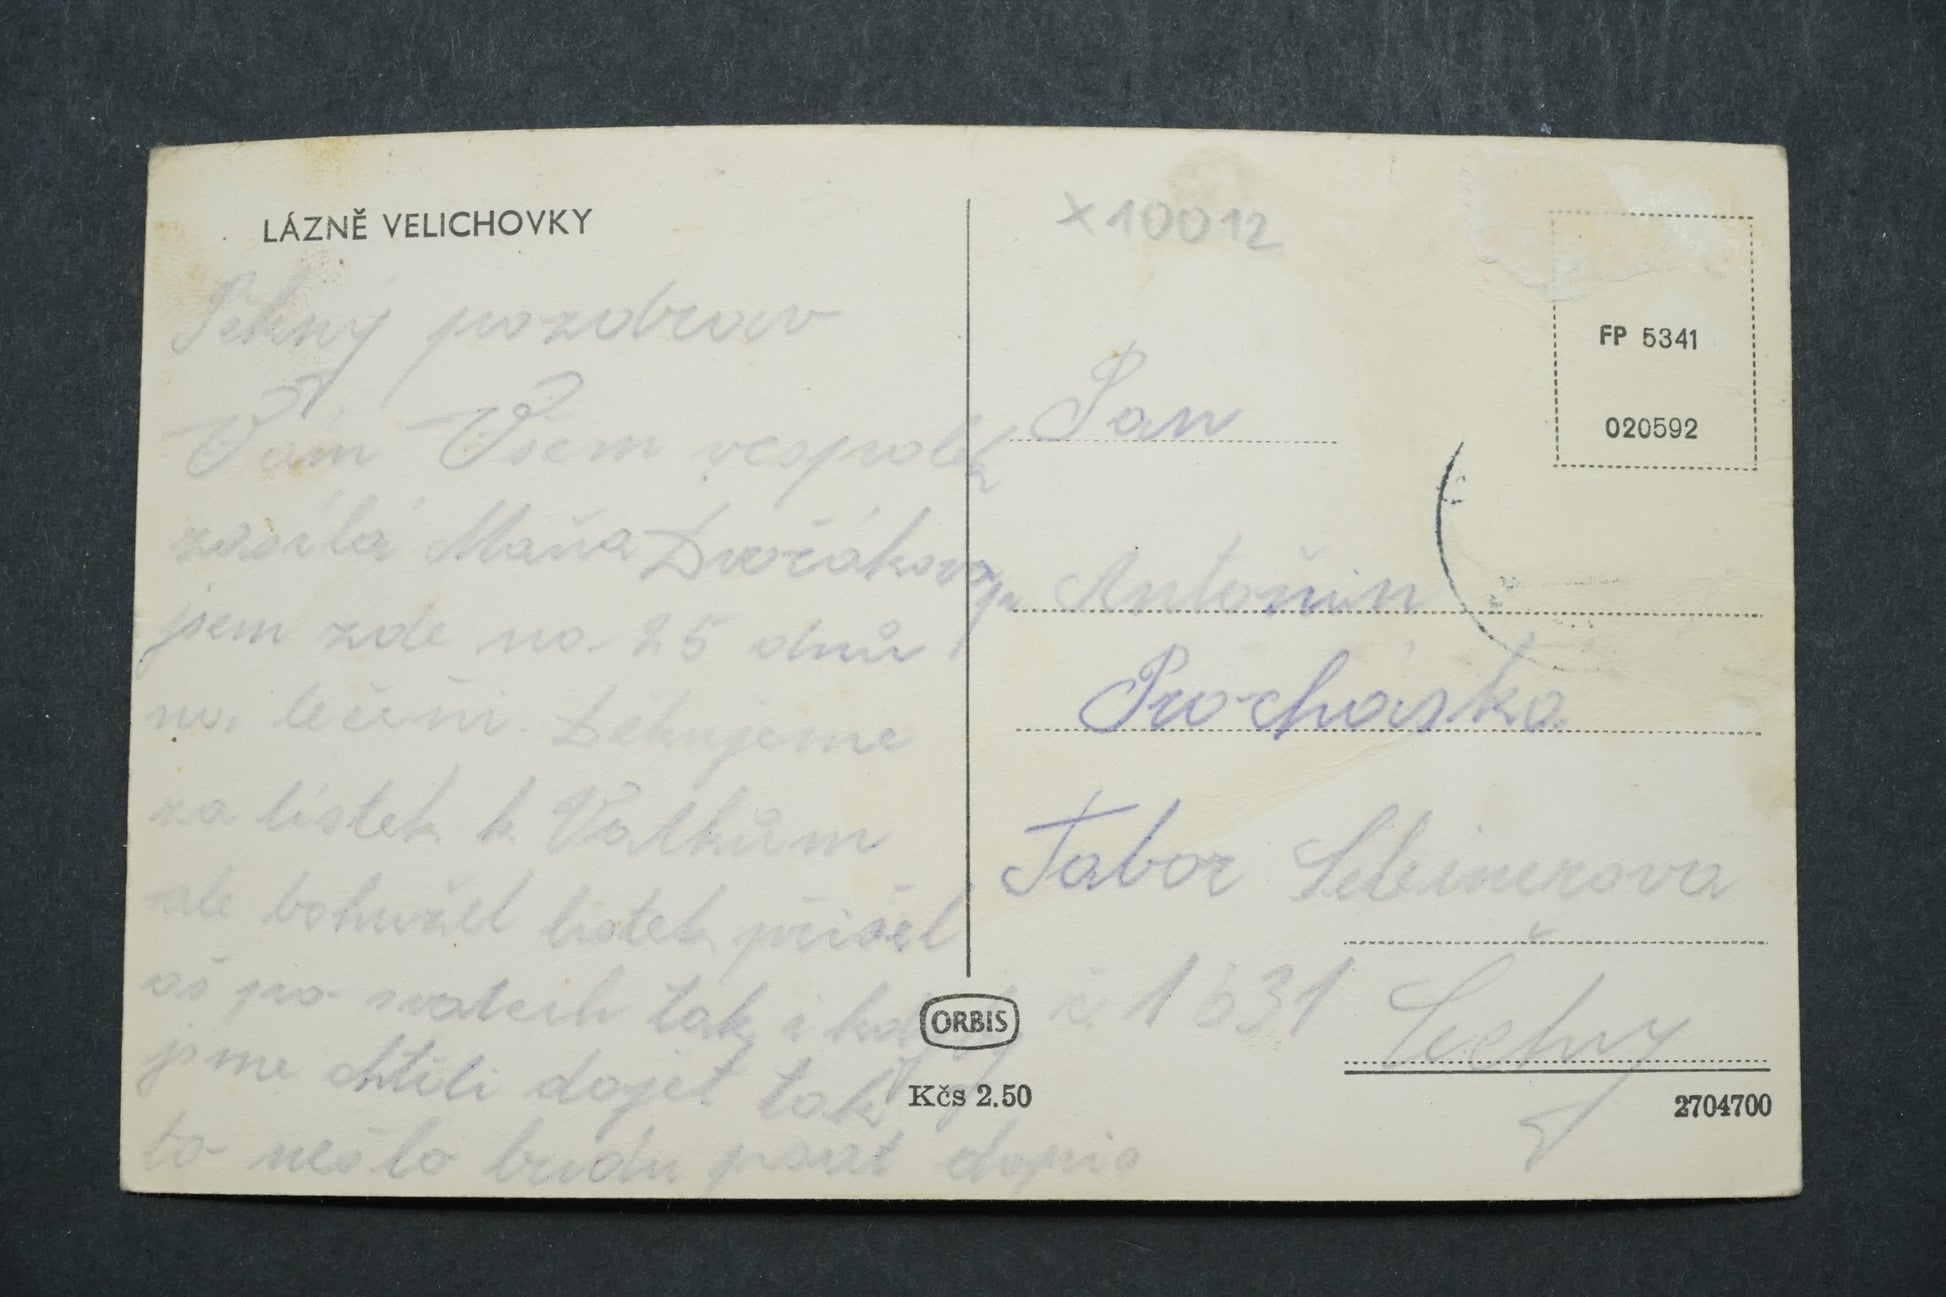 LÁZNĚ VELICHOVKY
Pěkný pozdrav
Vám Všem vespolek
zasílá Maňa Dvořáková
jsem zde na 25 dnů
na léčení. Děkujeme
za lístek k Valkům
ale bohužel lístek přišel
až po svatech tak i když
jsme chtěli dojet tak
to nešlo budu psat dopis
X10012
FP 5341
020592
Pan
Antoňin
Procháska
Tabor
č 1631
ORBIS
Kčs 2.50
2704700